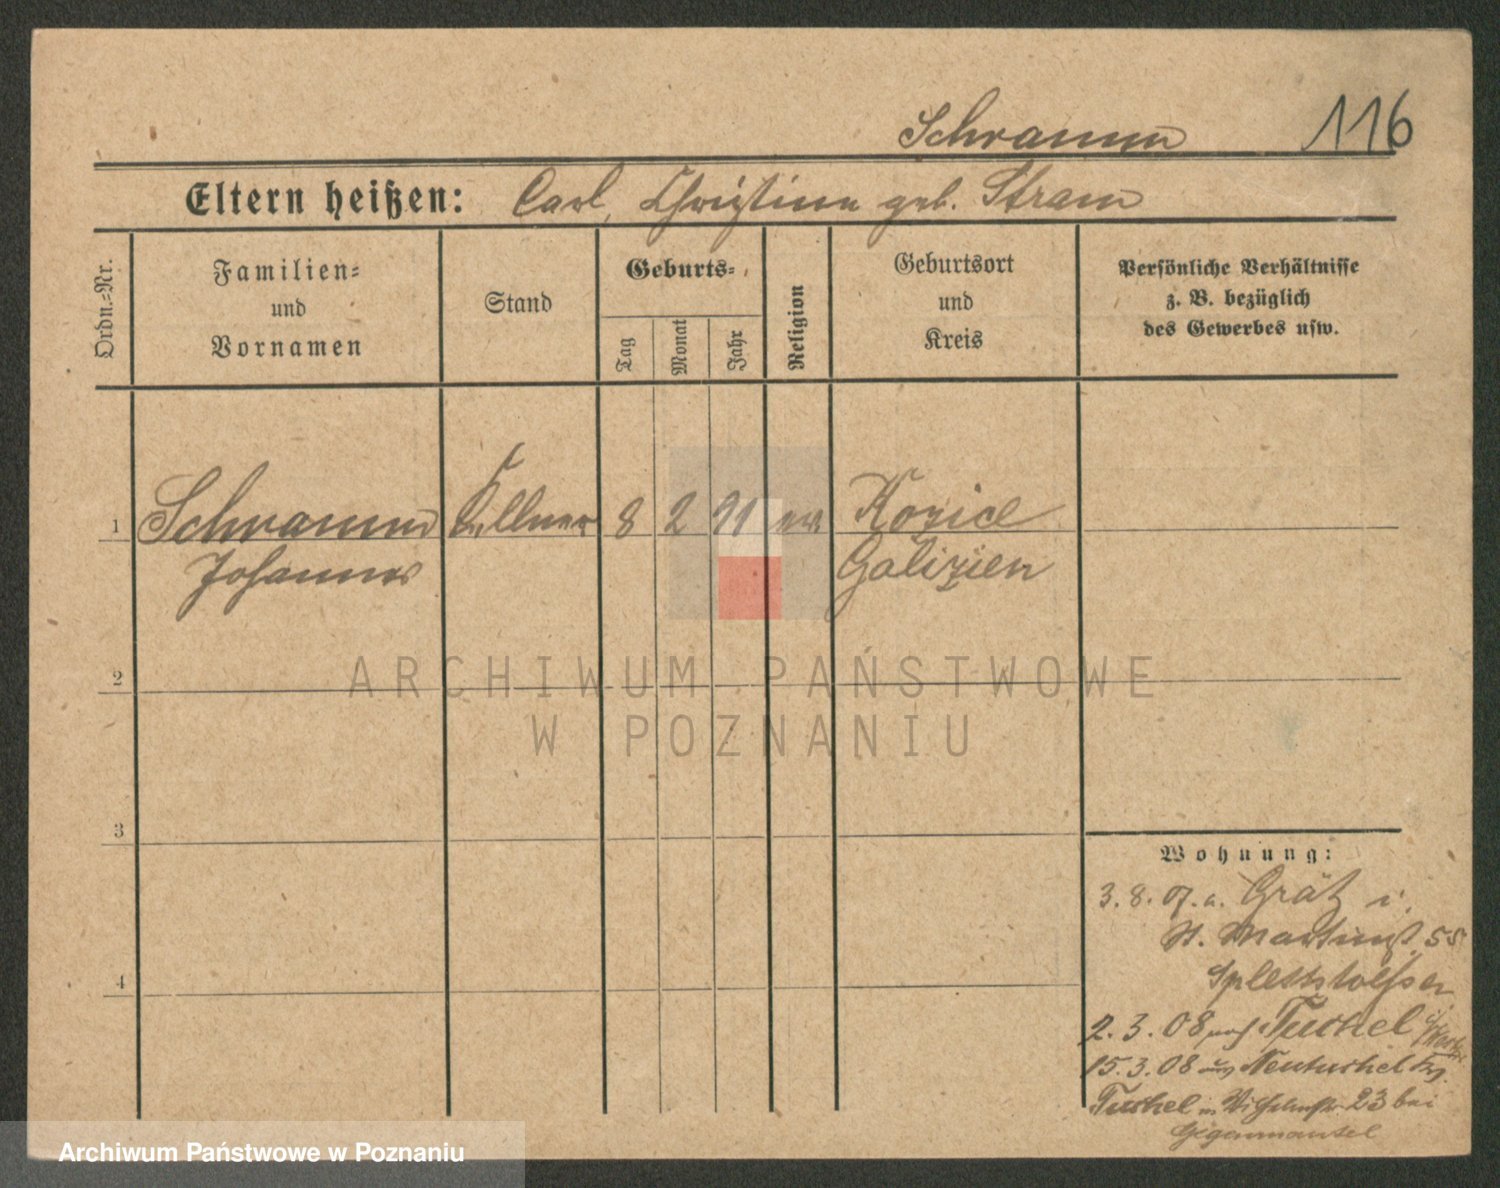 Schramm 116
Eltern heißen: Carl, Christine geb. Stram
Ordn.-Nr.
Familien-
und
Vornamen
Stand
Geburts-
Tag
Monat
Jahr
Religion
Geburtsort
und
Kreis
Persönliche Verhältnisse
z. B. bezüglich
des Gewerbes usw.
1 Schramm Kellner 8 2 91 ev. Kozice
Johannes Galizien
2
3
4
Wohnung:
3.8.07. a. Grätz i.
St. Martinst. 55
Splettstoesser
2.3.08 nach Tuchel
15.3.08 aus Neutuchel Kr.
Tuchel in Wilhelmstr 23 bei
Gegenmantel
ARCHIWUM PAŃSTWOWE
W POZNANIU
Archiwum Państwowe w Poznaniu